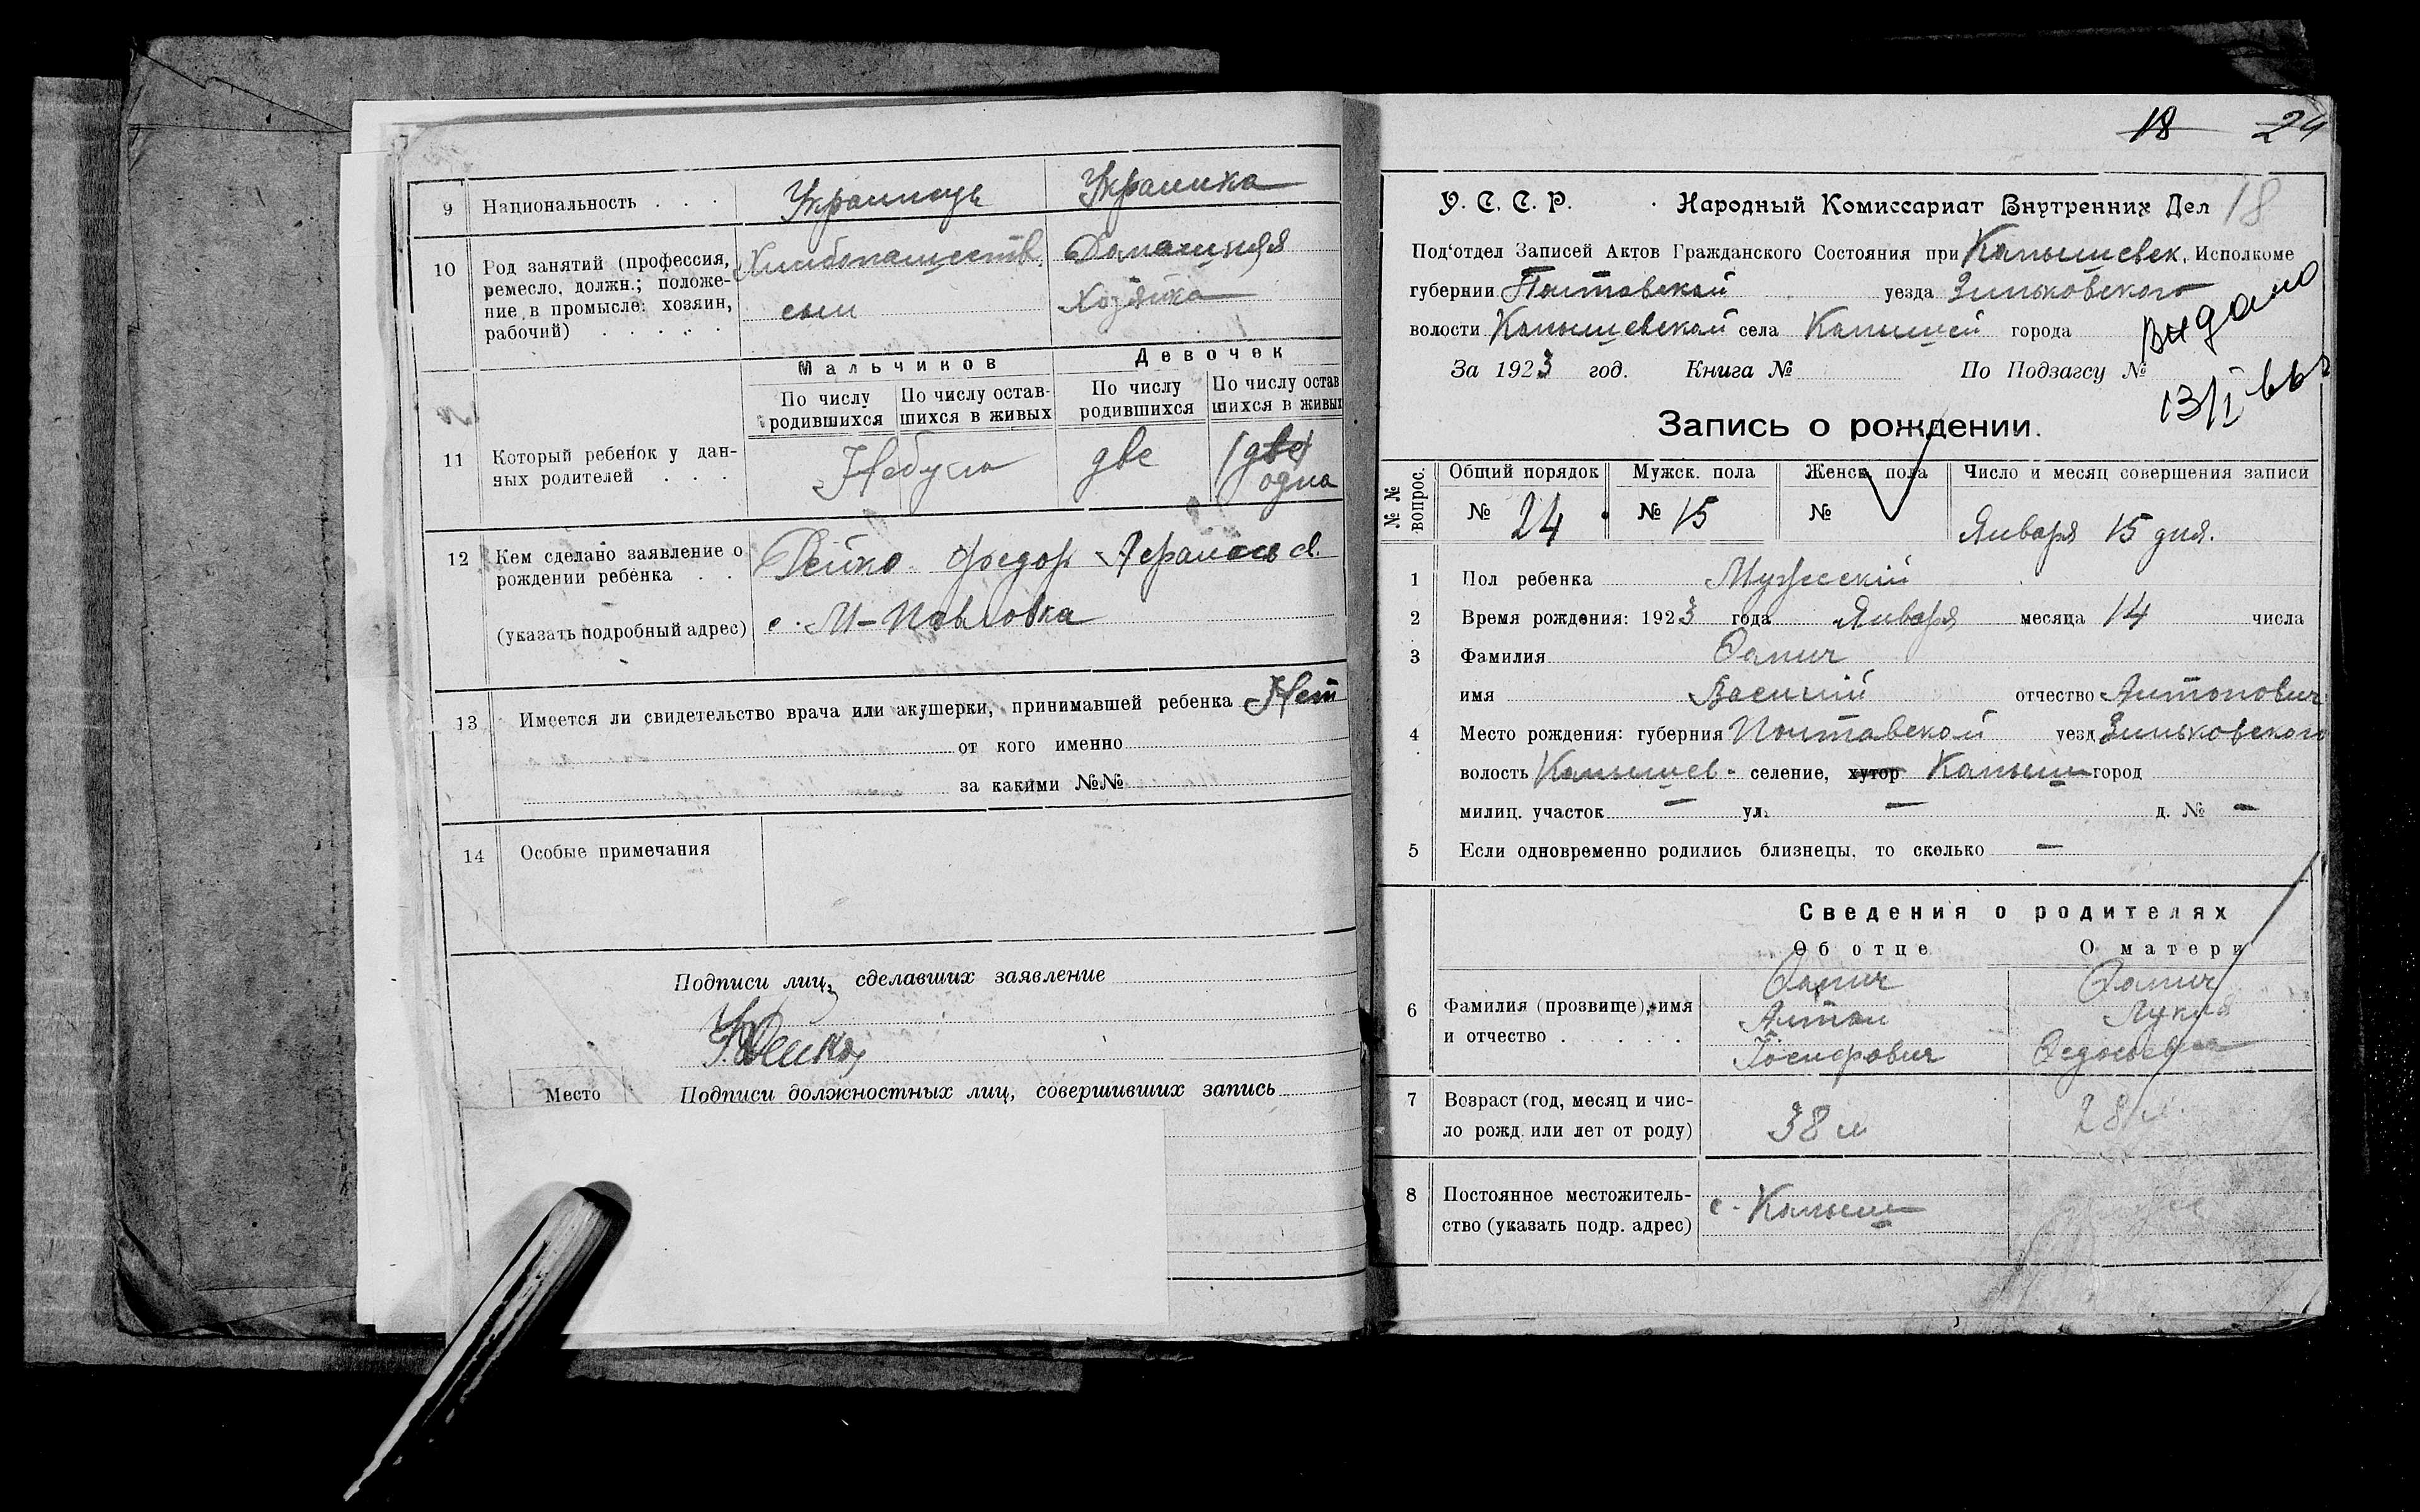 9 Национальность . . . Украинец Украинка
10 Род занятий (профессия, Хлебопашеств. Домашняя
ремесло, должн.; положе-
ние в промысле: хозяин, сын Хозяйка
рабочий) . . . . .
Мальчиков Девочек
По числу По числу остав- По числу По числу остав
родившихся шихся в живых родившихся шихся в живых
11 Который ребенок у дан- Небуло две (две)
ных родителей . . . одна
12 Кем сделано заявление о Рейко Федор Афанасьев.
рождении ребенка . .
(указать подробный адрес) с. М-Павловка
13 Имеется ли свидетельство врача или акушерки, принимавшей ребенка Нет
от кого именно
за какими №№
14 Особые примечания
Подписи лиц, сделавших заявление
Место Подписи должностных лиц, совершивших запись
18 24
У. С. С. Р. Народный Комиссариат Внутренних Дел 18
Под‘отдел Записей Актов Гражданского Состояния при Капышевск. Исполкоме
губернии Полтавской уезда Зиньковского
волости Капышевской села Капышей города
Видано
За 1923 год. Книга № По Подзагсу №
Запись о рождении.
№ № вопрос. Общий порядок Мужск. пола Женск. пола Число и месяц совершения записи
№ 24 № 15 № Января 15 дня.
1 Пол ребенка Мужескій
2 Время рождения: 1923 года Января месяца 14 числа
3 Фамилия Фанич
имя Василій отчество Антонович
4 Место рождения: губерния Полтавской уезд Зиньковского
волость Капышев- селение, хутор Капыш город
милиц. участок — ул. — д. № —
5 Если одновременно родились близнецы, то сколько —
Сведения о родителях
Об отце О матери
Фанич Фанич
6 Фамилия (прозвище), имя Антон Лукия
и отчество . . . . . Іосифович Федосьевна
7 Возраст (год, месяц и чис-
ло рожд. или лет от роду) 38 л 28 л.
8 Постоянное местожитель-
ство (указать подр. адрес) с. Капыш